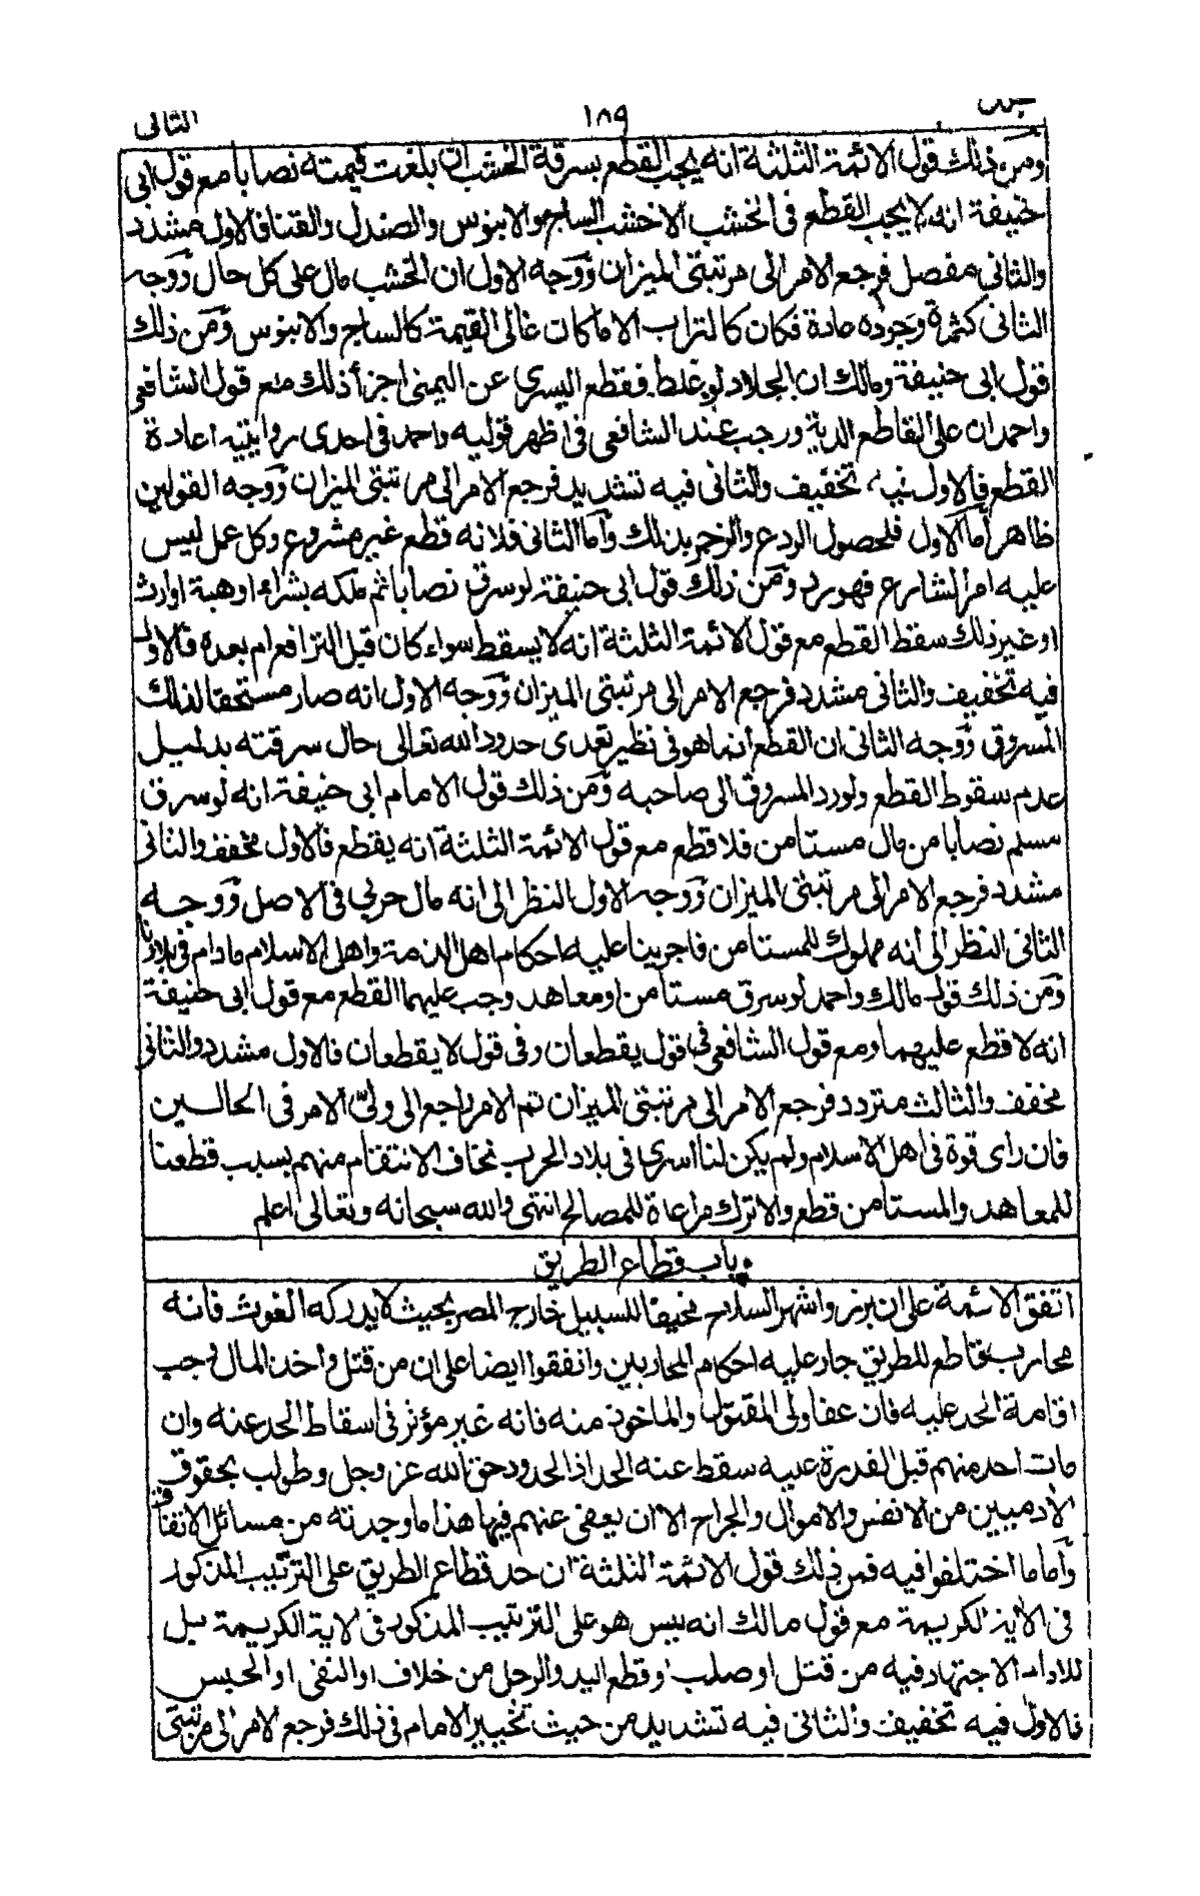 الثانى ١٨٩
ومن ذلك قول الائمة الثلثة انه يجب القطع بسرقة الخشب ان بلغت قيمته نصابا مع قول ابى
حنيفة انه لا يجب القطع فى الخشب الا خشب الساج والابنوس والصندل والقنا فالاول مشدد
والثانى مفصل فرجع الامر الى مرتبتى الميزان ووجه الاول ان الخشب مال على كل حال ووجه
الثانى كثرة وجوده عادة فكان كالتراب الا ما كان غالى القيمة كالساج والابنوس ومن ذلك
قول ابى حنيفة ومالك ان الجلاد لو غلط فقطع اليسرى عن اليمنى اجزأ ذلك مع قول الشافعى
واحمد ان على القاطع الدية ووجب عند الشافعى فى اظهر قوليه واحمد فى احدى روايتيه اعادة
القطع فالاول فيه تخفيف والثانى فيه تشديد فرجع الامر الى مرتبتى الميزان ووجه القولين
ظاهر أما الاول فلحصول الردع والزجر بذلك وأما الثانى فلانه قطع غير مشروع وكل عمل ليس
عليه امر الشارع فهو رد ومن ذلك قول ابى حنيفة لو سرق نصابا ثم ملكه بشراء او هبة او ارث
او غير ذلك سقط القطع مع قول الائمة الثلثة انه لا يسقط سواء كان قبل الترافع ام بعده فالاول
فيه تخفيف والثانى مشدد فرجع الامر الى مرتبتى الميزان ووجه الاول انه صار مستحقا لذلك
المسروق ووجه الثانى ان القطع انما هو فى نظير تعدى حدود الله تعالى حال سرقته بدليل
عدم سقوط القطع ولو رد المسروق الى صاحبه ومن ذلك قول الامام ابى حنيفة انه لو سرق
مسلم نصابا من مال مستامن فلا قطع مع قول الائمة الثلثة انه يقطع فالاول مخفف والثانى
مشدد فرجع الامر الى مرتبتى الميزان ووجه الاول النظر الى انه مال حربى فى الاصل ووجه
الثانى النظر الى أنه مملوك للمستامن فاجرينا عليه احكام اهل الذمة واهل الاسلام مادام فى بلادنا
ومن ذلك قول مالك واحمد لو سرق مستامن او معاهد وجب عليهما القطع مع قول ابى حنيفة
انه لا قطع عليهما ومع قول الشافعى فى قول يقطعان وفى قول لا يقطعان فالاول مشدد والثانى
مخفف والثالث متردد فرجع الامر الى مرتبتى الميزان ثم الامر راجع الى ولىّ الامر فى الحالين
فان رأى قوة فى اهل الاسلام ولم يكن لنا اسرى فى بلاد الحرب نخاف الانتقام منهم بسبب قطعنا
للمعاهد والمستامن قطع والا ترك مراعاة للمصالح انتهى والله سبحانه وتعالى اعلم
باب قطاع الطريق
اتفق الائمة على ان برز واشهر السلاح مخيفا للسبيل خارج المصر بحيث لا يدركه الغوث فانه
محارب قاطع للطريق جار عليه احكام المحاربين واتفقوا ايضا على ان من قتل واخذ المال وجب
اقامة الحد عليه فان عفا ولى المقتول والماخوذ منه فانه غير مؤثر فى اسقاط الحد عنه وان
مات احد منهم قبل القدرة عليه سقط عنه الحد اذ الحدود حق الله عز وجل وطولب بحقوق
الادميين من الانفس والاموال والجراح الا ان يعفى عنهم فيها هذا ما وجدته من مسائل الاتفاق
وأما ما اختلفوا فيه فمن ذلك قول الائمة الثلثة ان حد قطاع الطريق على الترتيب المذكور
فى الاية الكريمة مع قول مالك انه ليس هو على الترتيب المذكور فى لاية الكريمة بل
للامام الاجتهاد فيه من قتل او صلب او قطع اليد والرجل من خلاف او النفى او الحبس
فالاول فيه تخفيف والثانى فيه تشديد من حيث تخيير الامام فى ذلك فرجع الامر الى مرتبتى